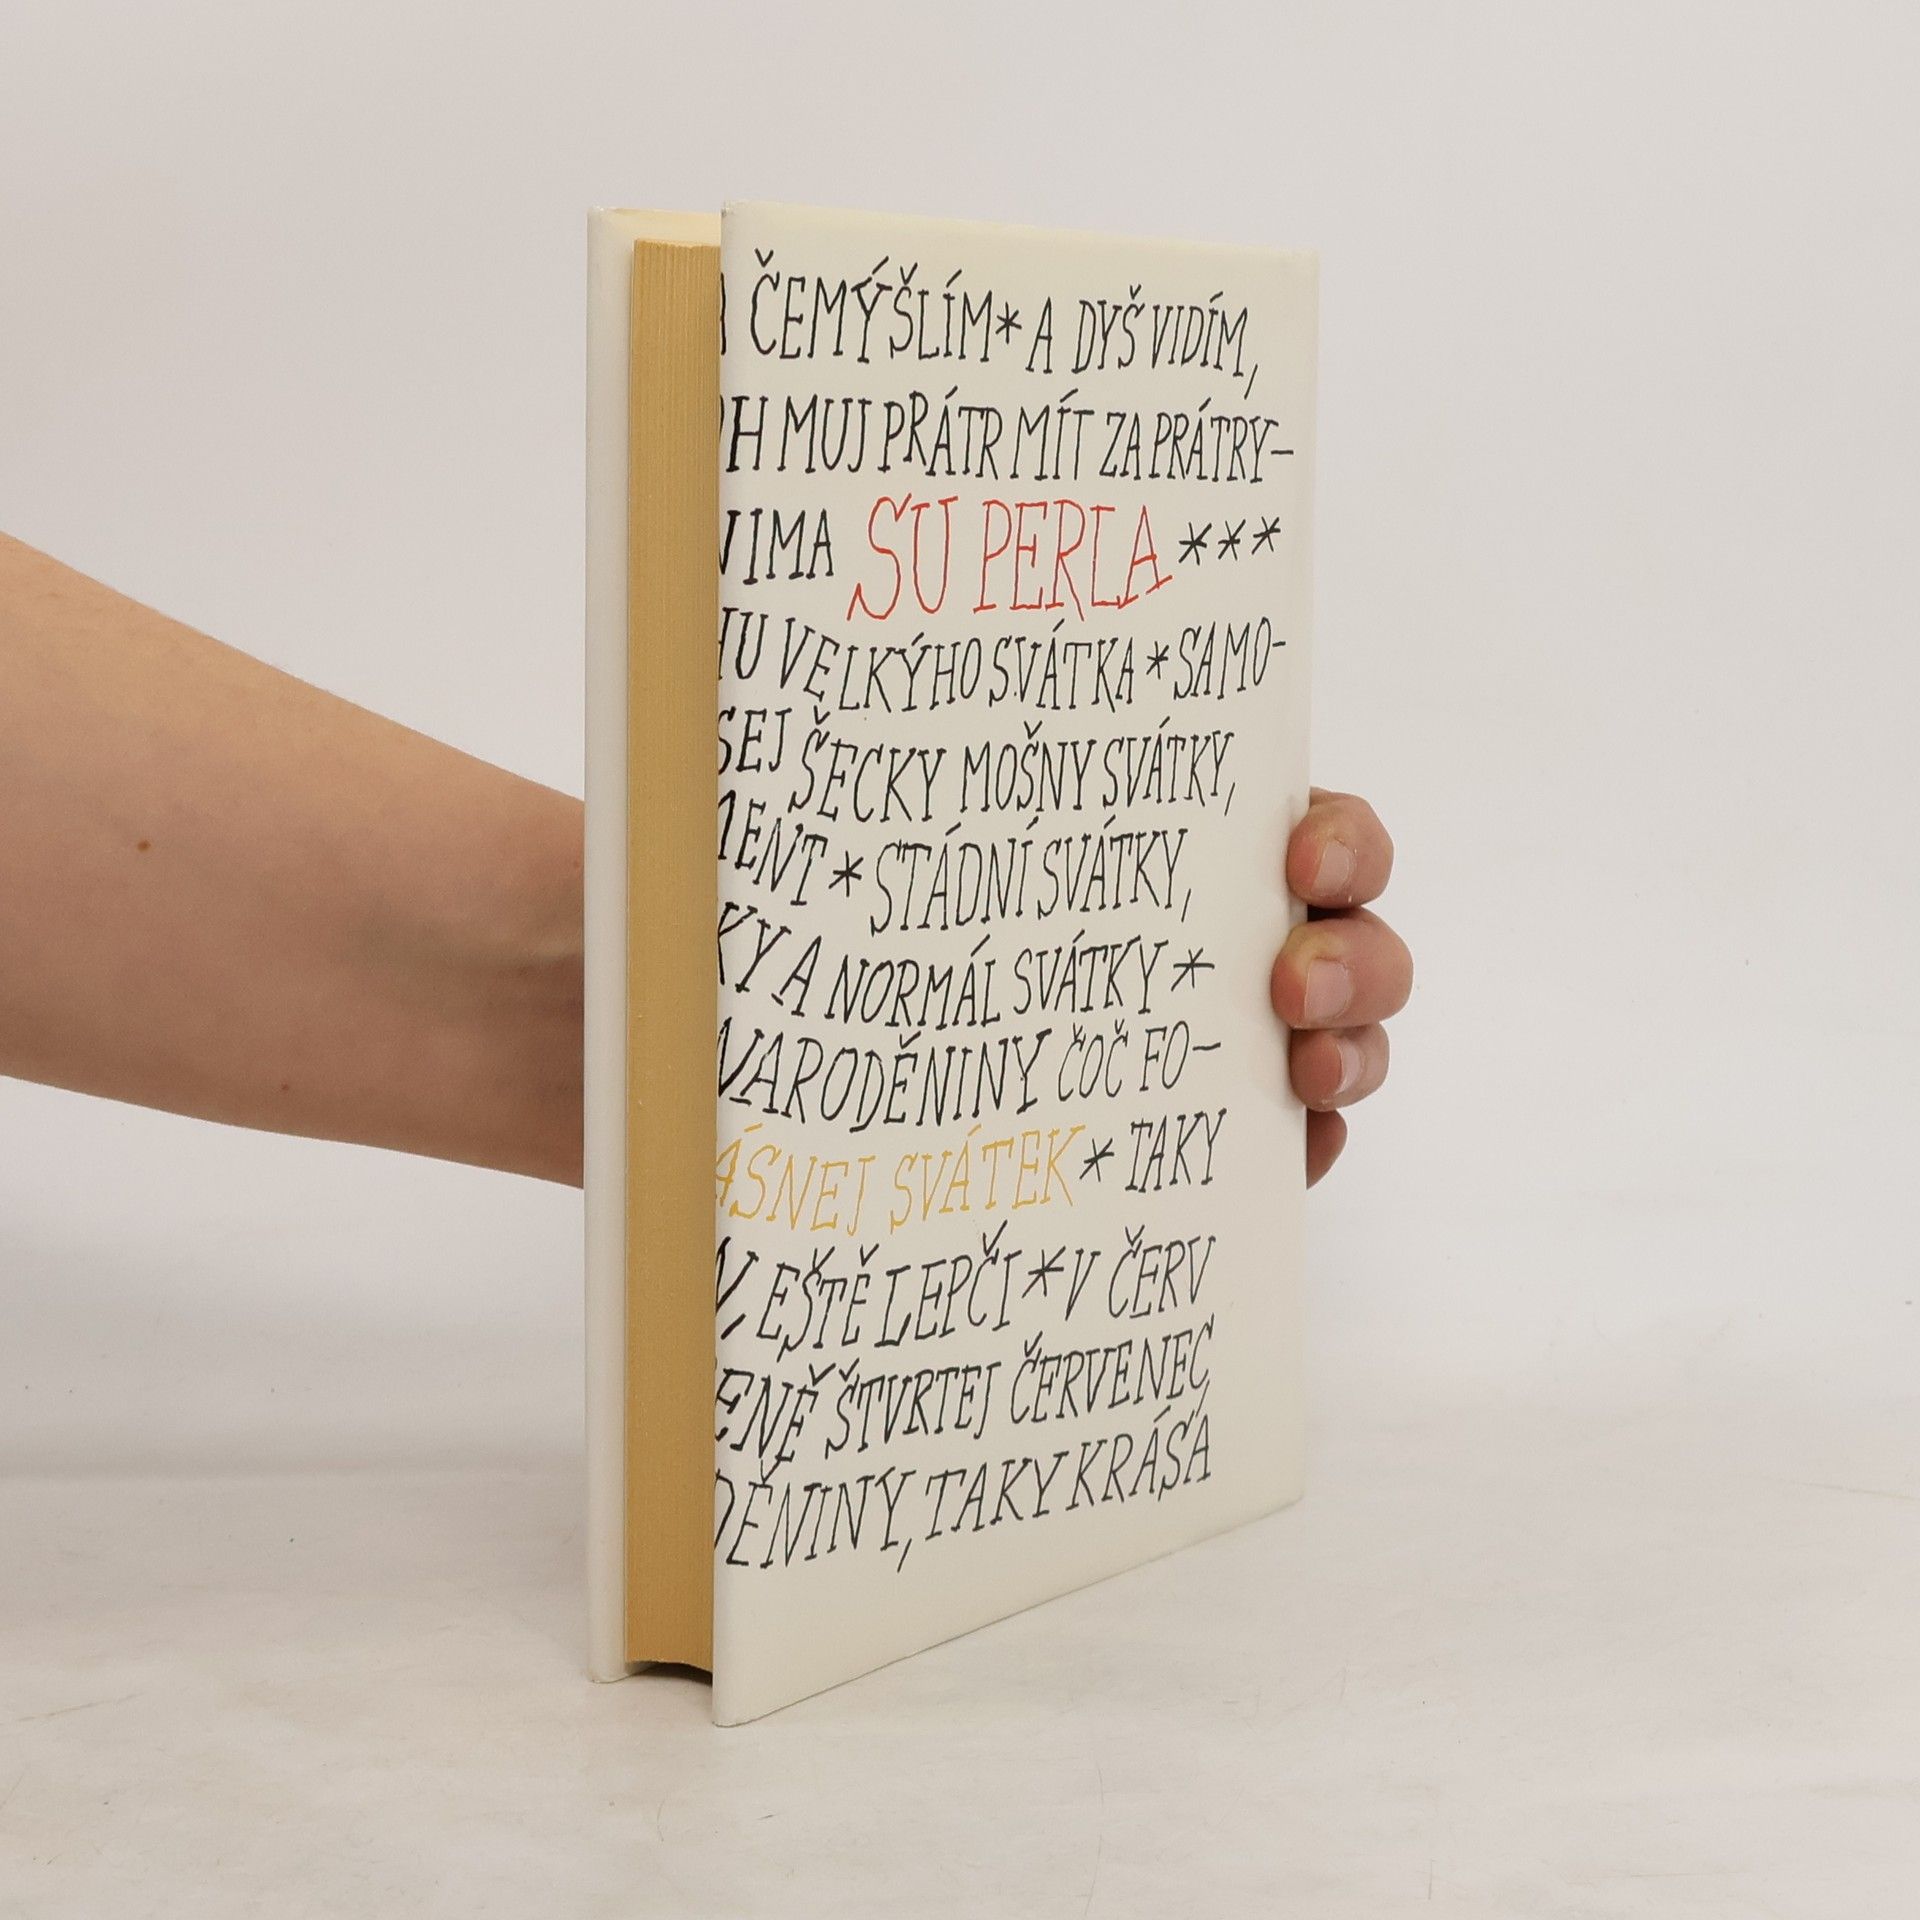 ČEMÝŠLÍM * A DYŠ VIDÍM,
MUJ PRÁTR MÍT ZA PRÁTRY-
IMA SU PERLA ***
VELKÝHO SVÁTKA * SAMO-
SEJ ŠECKY MOŠNY SVÁTKY,
MENT * STÁDNÍ SVÁTKY,
KY A NORMÁL SVÁTKY *
NARODĚNINY ČOČ FO-
ÁSNEJ SVÁTEK * TAKY
EŠTĚ LEPČI * V ČERV
ENĚ ŠTVRTEJ ČERVENEC,
DĚNINY, TAKY KRÁSÁ